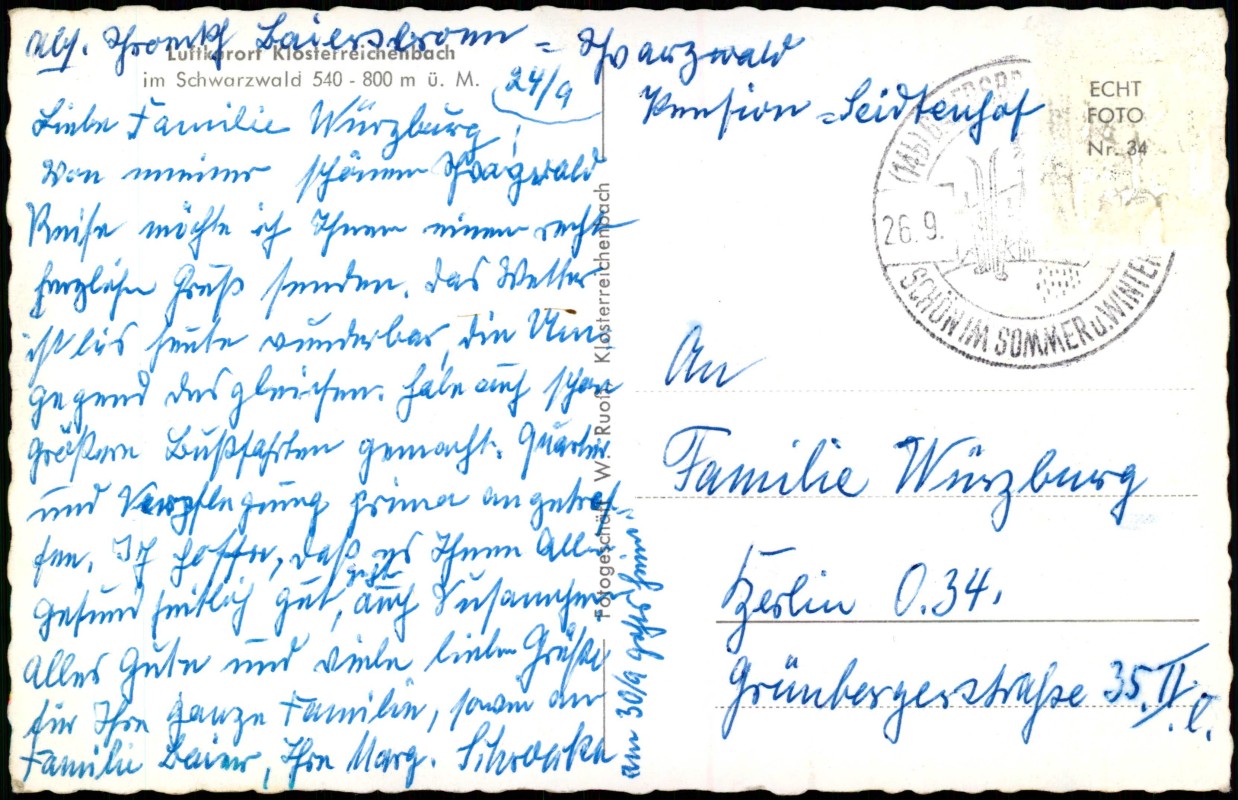 Abs. Schronk Baiersbronn = Schwarzwald
Pension = Seidtenhof
Luftkurort Klosterreichenbach
im Schwarzwald 540 - 800 m ü. M.
24/9
Liebe Familie Würzburg!
Von meiner schönen Schwarzwald
Reise möchte ich Ihnen einen recht
herzlichen Gruß senden. Das Wetter
ist bis heute wunderbar, die Um
gegend des gleichen. Habe auch schon
größere Bußfahrten gemacht. Quartier
und Verpflegung prima angetrof-
fen. Ich hoffe, daß es Ihnen Allen
gesundheitlich gut geht, auch Susannchen
Alles Gute und viele liebe Grüße
für Ihre ganze Familie, sowie an
Familie Baier, Ihre Marg.
am 30/9 gehts heim.
Fotogeschäft W. Ruoß, Klosterreichenbach
ECHT
FOTO
Nr. 34
(14b)
26.9.
SCHÖN IM SOMMER u. WINTER
An
Familie Würzburg
Berlin O.34.
Grünbergerstraße 35 II. l.